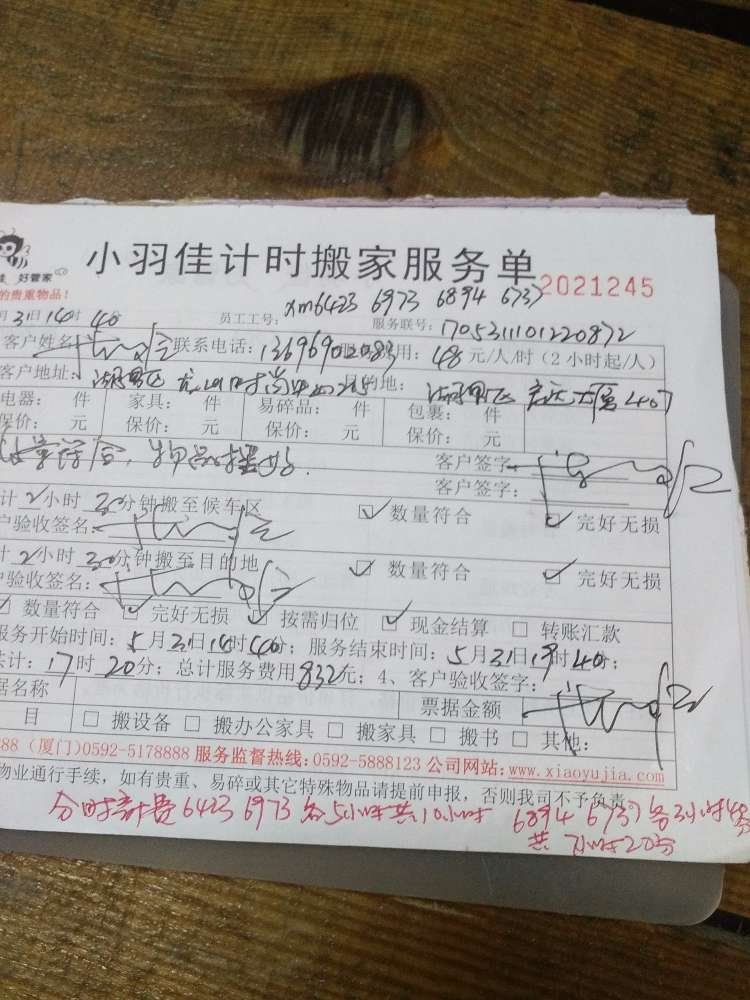 好管家
小羽佳计时搬家服务单 2021245
的贵重物品!
xm6423 6973 6894 6737
月31日14时40 员工工号: 服务联号: 170531101220872
客户姓名 联系电话: 用: 48元/人/时 (2小时起/人)
客户地址: 湖里区 的地: 湖里区 407
电器: 件 家具: 件 易碎品: 件 包裹: 件
保价: 元 保价: 元 保价: 元 保价: 元
客户签字:
客户签字:
计2小时30分钟搬至候车区
户验收签名: ☑ 数量符合 ☑ 完好无损
计2小时30分钟搬至目的地
户验收签名: ☑ 数量符合 ☑ 完好无损
☑ 数量符合 ☑ 完好无损 ☑ 按需归位 ☑ 现金结算 □ 转账汇款
服务开始时间: 5月31日14时40分; 服务结束时间: 5月31日19时40分;
共计: 17时20分; 总计服务费用832元; 4、客户验收签字:
据名称 票据金额
目 □ 搬设备 □ 搬办公家具 □ 搬家具 □ 搬书 □ 其他:
888 (厦门)0592-5178888 服务监督热线: 0592-5888123 公司网站: www.xiaoyujia.com
物业通行手续, 如有贵重、易碎或其它特殊物品请提前申报, 否则我司不予负责。
分时计费 6423 6973 各5小时共10小时 6894 6737 各3小时40分
共 7小时20分